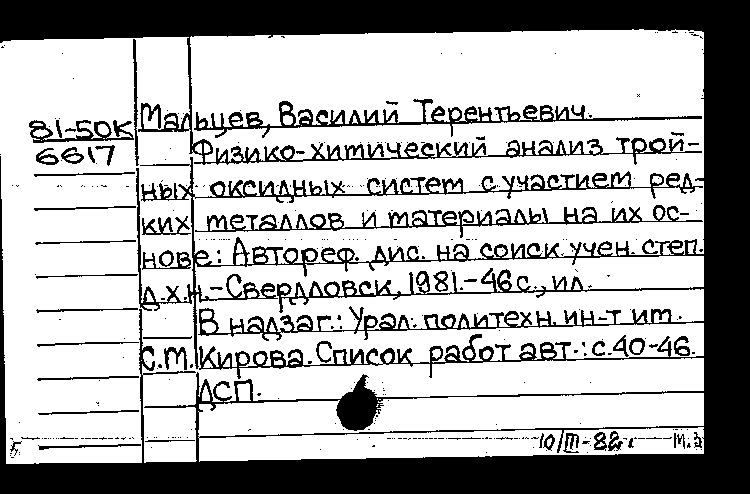 Мальцев, Василий Терентьевич.
81-50К
6617
Физико-химический анализ трой-
ных оксидных систем с участием ред-
ких металлов и материалы на их ос-
нове: Автореф. дис. на соиск. учен. степ.
д.х.н.-Свердловск, 1981.-46 с., ил.
В надзаг.: Урал. политехн. ин-т им.
С.М. Кирова. Список работ авт.: с. 40-46.
ДСП.
10/III-82г.